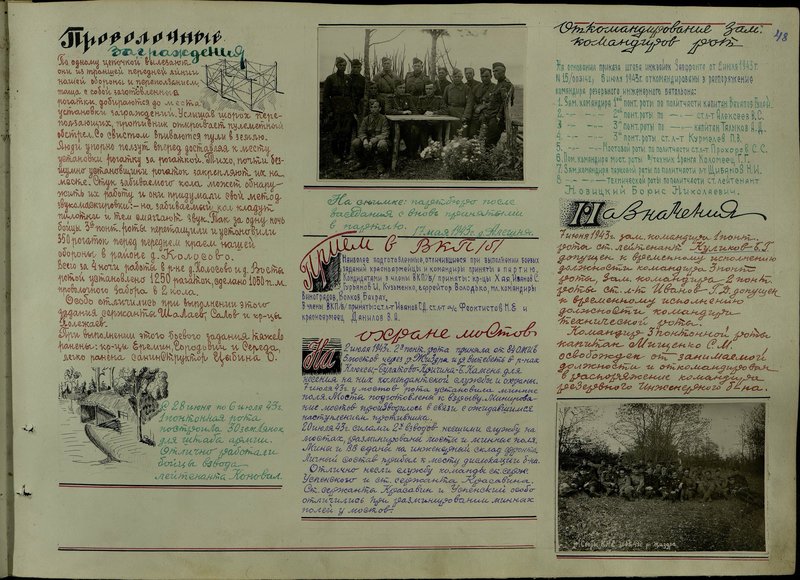 Проволочные
заграждения
По одному цепочкой вылезают
они из траншей передней линии
нашей обороны и переползанием,
таща с собой заготовленные
рогатки добираются до места
установки заграждений. Услышав шорох пере-
ползающих, противник открывает пулеметный
обстрел. Со свистом впиваются пули в землю.
Люди упорно ползут вперед доставляя к месту
установки рогатку за рогаткой. Тихо, почти без-
шумно установщики рогаток закрепляют их на
месте. Стук забиваемого кола может обнару-
жить их работу и они придумали свой метод
звукомаскировки - на забиваемый кол кладут
пилотки и тем смягчают звук. Так за одну ночь
бойцы 3й понт. роты перетащили и установили
350 рогаток перед передним краем нашей
обороны в районе д. Колосово.
Всего за 4 ночи работы в р-не д. Колосово и д. Восты
ротой установлено 1250 рогаток, сделано 1080 п.м.
проволочного забора в 2 кола.
Особо отличились при выполнении этого
задания сержанты Шалаев, Салов и кр-цы
Полежаев.
При выполнении этого боевого задания тяжело
ранены: кр-цы Епехин, Сородович и Середа,
легко ранена санинструктор Цыбина О.
С 28 июня по 6 июля 43г.
1 понтонная рота
построила 30 землянок
для штаба армии.
Отлично работали
бойцы взвода
лейтенанта Коновал.
На снимке: партбюро после
заседания с вновь принятыми
в партию. 17 мая 1943г. д. Алешня.
Прием в ВКП/б/
Наиболее подготовленные, отличившиеся при выполнении боевых
заданий красноармейцы и командиры приняты в партию.
Кандидатами в члены ВКП/б/ приняты: кр-цы Хая, Иванов С.
Гурьянов И, Кузьменко, корректор Володько, мл. командиры
Виноградов, Волков,
В члены ВКП/б/ приняты: ст. л-т Иванов Г.Д., ст. л-т а/с Феоктистов М.Е. и
красноармеец Данилов З.В.
На охране мостов
2 июля 1943г. 2я понт. рота приняла от ВУСК 16
5 мостов через р. Жиздра и р. Вытебеть в р-нах
Клюксы-Булатово-Дретна-Б. Камень для
несения на них комендантской службы и охраны.
6 июля 43г. у мостов рота установила минные
поля. Мосты подготовлены к взрыву. Минирова-
ние мостов производилось в связи с ожидавшимся
наступлением противника.
20 июля 43г. силами 2х взводов несшими службу на
мостах, разминированы мосты и минные поля.
Мины и ВВ сданы на инженерный склад фронта.
Личный состав прибыл к месту дислокации б-на.
Отлично несли службу команды ст. серж.
Успенского и ст. сержанта Красавина.
Ст. сержанты Красавин и Успенский особо
отличились при разминировании минных
полей у мостов.
48
Откомандирование зам.
командиров рот
На основании приказа штаба инжвойск Запфронта от 2 июля 1943г.
N 15/оргинж, 6 июля 1943г. откомандированы в распоряжение
командира резервного инженерного батальона:
1. Зам. командира 1й понт. роты по политчасти капитан
2. -"- -"- 2й понт. роты -"- ст. л-т Алексеев В.С.
3. -"- -"- 3й понт. роты -"- капитан Талыков А.Д.
4. -"- -"- 3й понт. роты ст. л-т Курмелев П.В.
5. -"- -"- Мостовой роты по политчасти ст. л-т Прохоров С.С.
6. Пом. командира мост. роты в-техник 1 ранга Коломеец Г.Г.
7. Зам. командира парковой роты по политчасти л-т Щибанов Н.И.
8. -"- -"- Технической роты по политчасти ст. лейтенант
Новицкий Борис Николаевич.
Назначения
7 июня 1943г. зам. командира 1 понт.
роты ст. лейтенант Куликов Б.Г.
допущен к временному исполнению
должности командира 3 понт.
роты, зам. командира 2 понт.
роты ст. л-т Иванов Г.Д. допущен
к временному исполнению
должности командира
технической роты.
Командир 3й понтонной роты
капитан Мищенко С.М.
освобожден от занимаемой
должности и откомандирован
в распоряжение командира
резервного инженерного б-на.
р. Жиздра